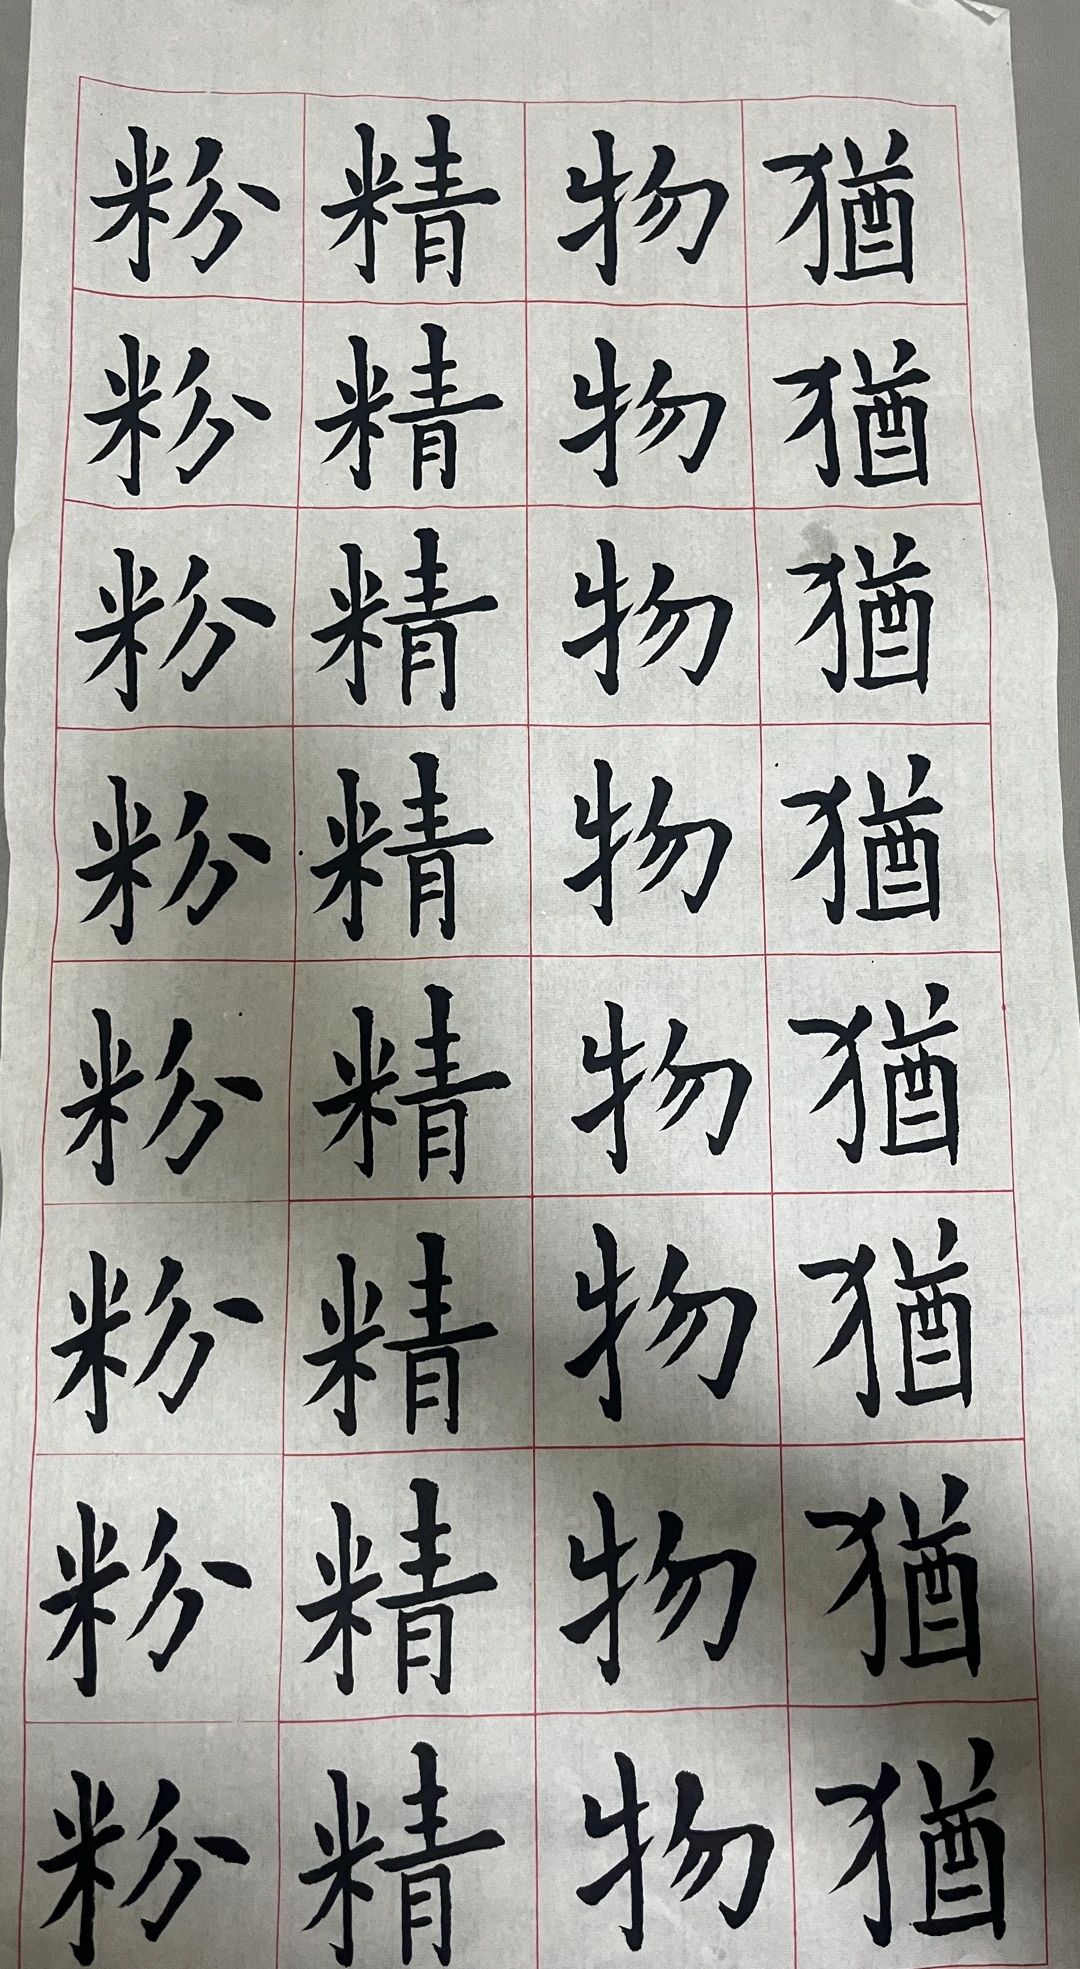 猶猶猶猶猶猶猶猶
物物物物物物物物
精精精精精精精精
粉粉粉粉粉粉粉粉